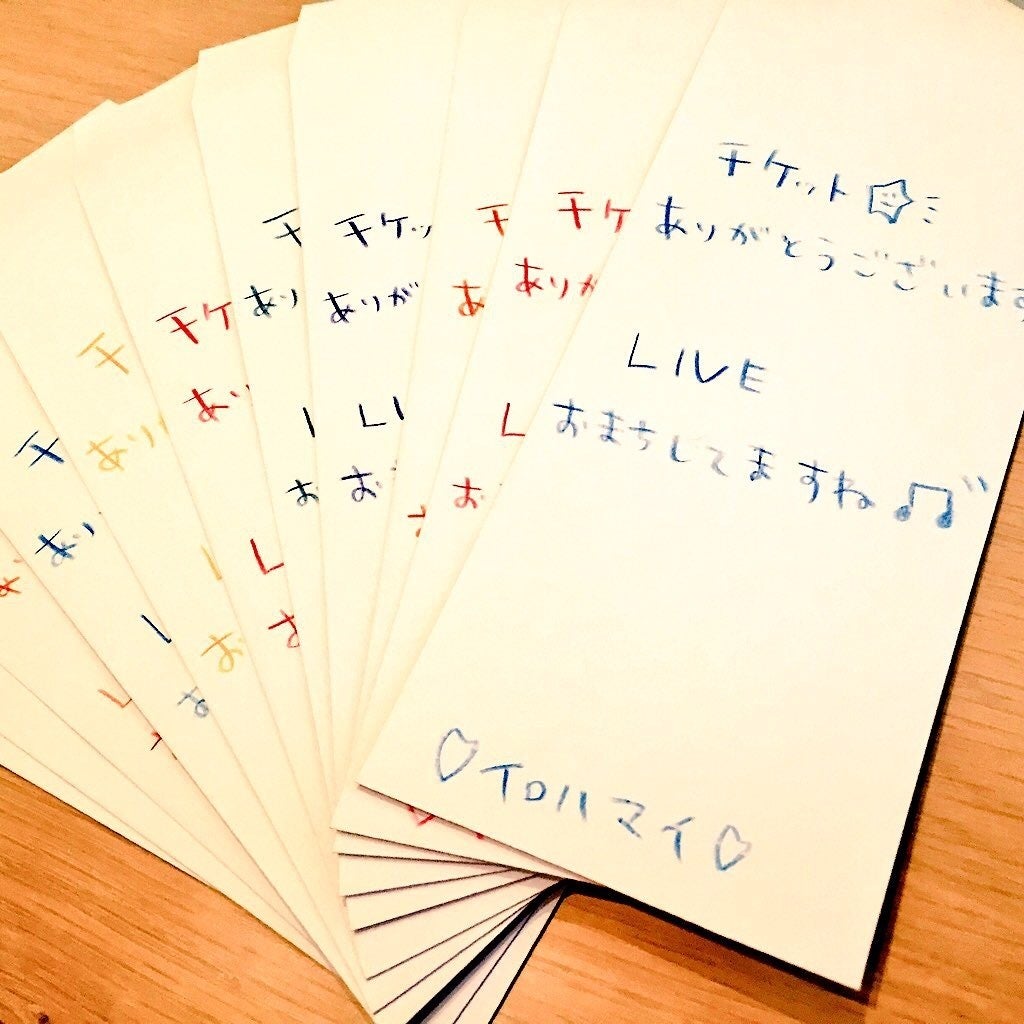 チケット
ありがとうございます
LIVE
おまちしてますね♫
♡イロハマイ♡
チケッ
ありが
LI
お
チケ
あり
L
お
チ
あ
お
チ
あり
l
お
チケ
あり
L
お
チ
あり
L
お
チ
あり
L
お
あ
L